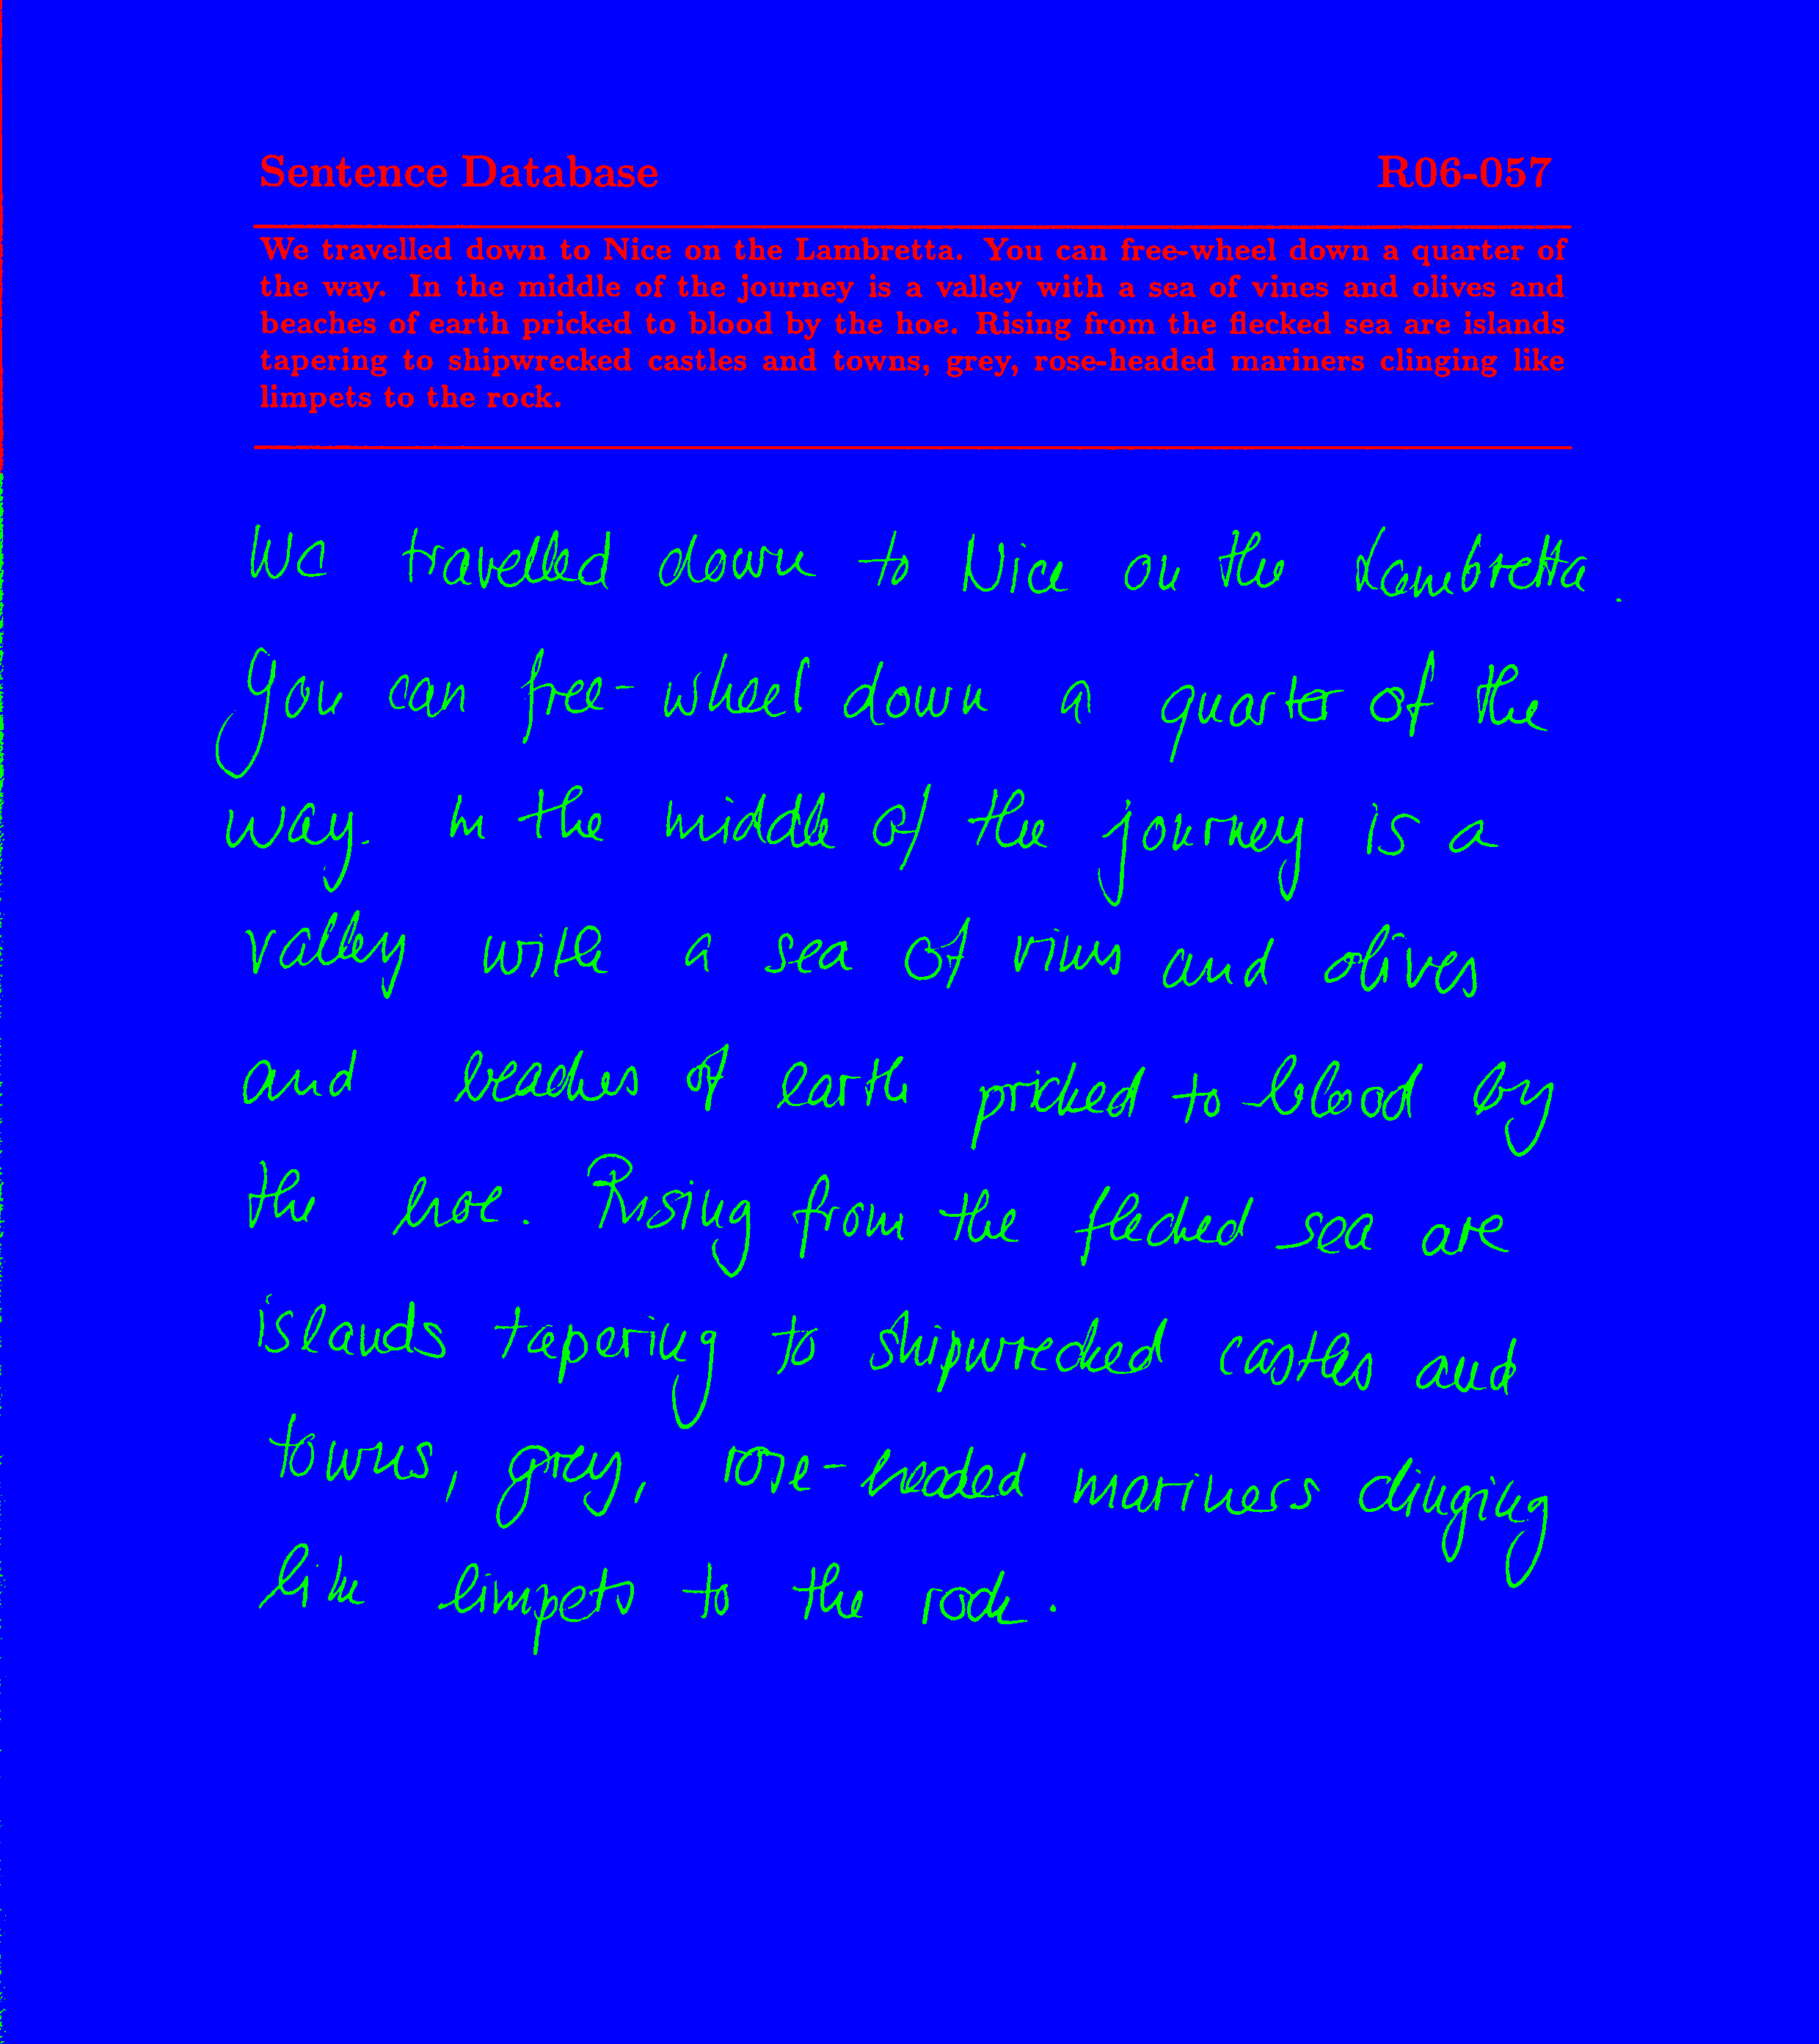 Sentence Database R06-057
We travelled down to Nice on the Lambretta. You can free-wheel down a quarter of
the way. In the middle of the journey is a valley with a sea of vines and olives and
beaches of earth pricked to blood by the hoe. Rising from the flecked sea are islands
tapering to shipwrecked castles and towns, grey, rose-headed mariners clinging like
limpets to the rock.
We travelled down to Nice on the Lambretta.
You can free-wheel down a quarter of the
way. In the middle of the journey is a
valley with a sea of vines and olives
and beaches of earth pricked to blood by
the hoe. Rising from the flecked sea are
islands tapering to shipwrecked castles and
towns, grey, rose-headed mariners clinging
like limpets to the rock.